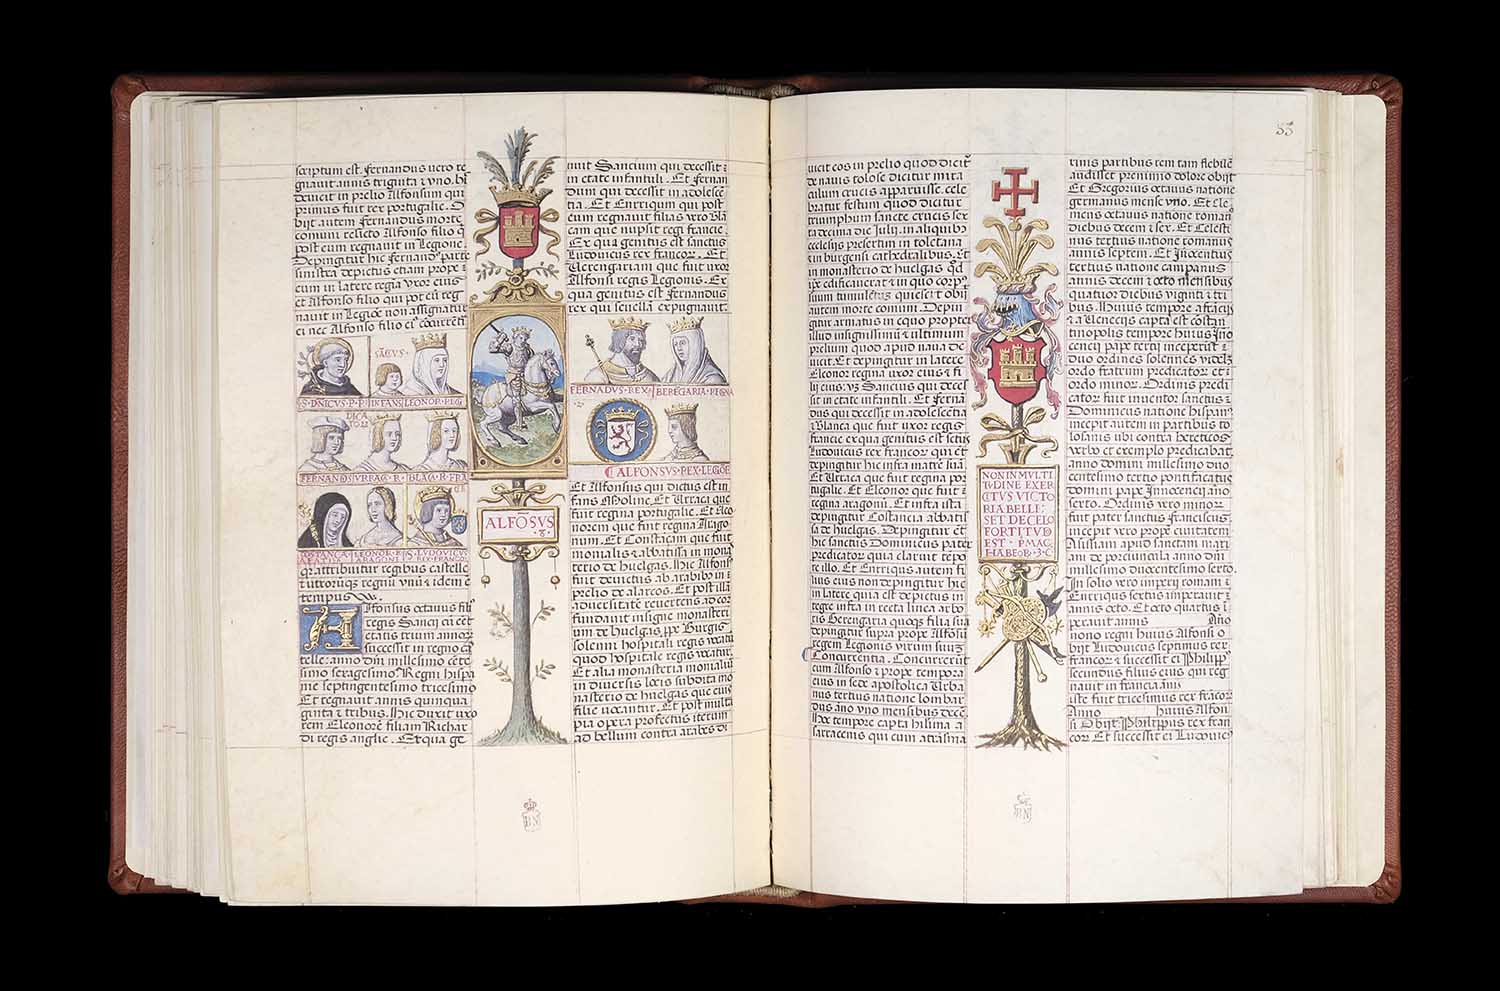 scriptum est. fernandus vero re
gnavit annis triginta & uno. hic
devicit in prelio Alfonsum qui
primus fuit rex portugalie. O
bijt autem fernandus morte
comuni relicto Alfonso filio q̃
post eum regnavit in Legione.
Depingitur hic fernand⁹ parte
sinistra depictus etiam prope
cum in latere regia uxor eius
et Alfonso filio qui pot eũ reg
navit in Legiõe non assignatur
ei nec Alfonso filio ei⁹ cõcurrẽt
SÃCVS ·
S·DNICVS·P·P INFANS LEONOR·REG
DICA
TO32
FERNANDS VRFAC·R· BLÃC·R·FRA
COSTANCA LEONOR·REG LVDOVICVS
ABATISA ARAGONE REX·FRANCO
q̃ attribuitur regibus castelle
tempus
Alfonsus octavus fili⁹
regis Sancij cũ eẽt
etatis trium annorũ
successit in regno cas
telle: anno dñi millesimo cẽte
simo seragesimo. Regni hispa
nie septingentesimo tricesimo
Et regnavit annis quinqua
ginta & tribus. Hic duxit uxo
rem Eleonorẽ filiam Richar
di regis anglie. Et qua ge
ALFÕSVS
· 8 ·
nuit Sancium qui decessit
in etate infantuli. Et fernan
dum qui decessit in adolescẽ
tia. Et Enrricum qui post
eum regnavit filias vero blã
cam que nupsit regi francie.
Ex qua genitus est sanctus
Ludovicus rex francor. Et
Berengariam que fuit uxor
Alfonsi regis Legionis. Ex
qua genitus est fernandus
rex qui senella expugnavit.
FERNADVS·REX· BEREGARIA·REGNA
ALFONSVS·REX·LEGÕE
Et Alfonsus qui dictus est in
fans Moline. Et Urraca que
fuit regina portugalie. Et Leo
norem que fuit regina Arago
num. Et Constaçam que fuit
monialis & abbatissa in mona
sterio de huelgas. Hic Alfons⁹
fuit devictus ab arabib⁹ in
prelio de alarcos. Et post illã
adversitatẽ revertens ad cor
fundavit insigne monasteri
um de huelgas. ppe Burgis
solenni hospitali regis vocatur
quod hospitale regis vocatur
Et alia monasteria monialiũ
in diversis locis subdita mo
nasterio de huelgas que eius
filie vocantur. Et post multa
pia opera profectus iterum
ad bellum contra arabes di
BN
83
uicit eos in prelio quod dicit̃
de navis tolose dicitur mira
culum crucis apparuisse. cele
bratur festum quod dicitur
triumphum sancte crucis sex
ta decima die Julij. in aliquib⁹
ecclesijs presertim in toletana
in burgensi cathedralibus. Et
in monasterio de huelgas qd̃
ipe edificaverat & in quo corp⁹
suum tumulatũ quiescit obijt
autem morte comuni. Depin
gitur armatus in equo propter
illud insignissimũ & ultimum
prelium quod apud nava de
vicit. Et depingitur in latere
Eleonor regina uxor eius & fi
lij eius: vz Sancius qui deces
sit in etate infantuli. Et fernã
dus qui decessit in adolescẽtia
& blanca que fuit uxor regis
francie ex qua genitus est sctus
Ludovicus rex francor qui et
depingitur hic infra matre suã
Et Urraca que fuit regina por
tugalie. Et Eleonor que fuit
regina aragonũ. Et infra ista
depingitur Costãcia abbatis
sa de huelgas. Depingitur et
hic sanctus Dominicus pater
predicator quia claruit tẽpo
re illo. Et Enrriquus autem fi
lius eius non depingitur hic
in latere quia est depictus in
regre infra in recta linea arbo
ris Berengaria quoqe filia sua
depingitur supra prope Alfonsũ
regem Legionis virum suum
Concurrentia. Concurrerũt
cum Alfonso & prope tempora
eius in sede apostolica Urba
nus tertius natione lombar
dus año uno mensibus dece
Hoc tempore capta hisima a
sarracenis qui cum atrasma
NON IN MVLTI
TVDINE EXER
CITVS VICTO
RIA BELLI:
SET DE CELO
FORTITVD
EST · P·MAC
HABEOR·3·C·
BN
rinis partibus rem tam flebilẽ
audisset prenimio dolore obijt
Et Gregorius octavus natione
germanus mense uno. Et Cle
mens octavus natione roman⁹
diebus decem & sex. Et Celesti
nus tertius natione romanus
annis septem. Et Inocentius
tertius natione campanus
annis decem & octo mensibus
quatuor diebus viginti & tri
bus. Huius tempore a francis
& a Venecijs capta est cõstan
tinopolis tempore huius Ino
cencij pape tertij inceperũt
duo ordines solennes videlz
ordo fratrum predicator et
ordo minor. Ordinis predi
cator fuit inventor sanctus
Dominicus natione hispan⁹
incepit autem in partibus to
losanis ubi contra hereticos
verbo et exemplo predicabat
anno domini millesimo duo
centesimo tertio pontificatus
domini pape Innocencij año
sexto. Ordinis vero minor
fuit pater sanctus franciscus
incepit vero prope civitatem
Assisiam apud sanctam mari
am de porciuncula anno dñi
millesimo ducentesimo sexto.
In solio vero imperij romani
Enrriqus sextus imperavit
annis octo. Et octo quartus
peravit annis Año
nono regni huius Alfonsi o
bijt Ludovicus septimus rex
francor & successit ei Philipp⁹
secundus filius eius qui reg
navit in francia añis
iste fuit tricesimus rex frãcor
Anno huius Alfon
si obijt Philippus rex fran
cor Et successit ei Ludovic⁹